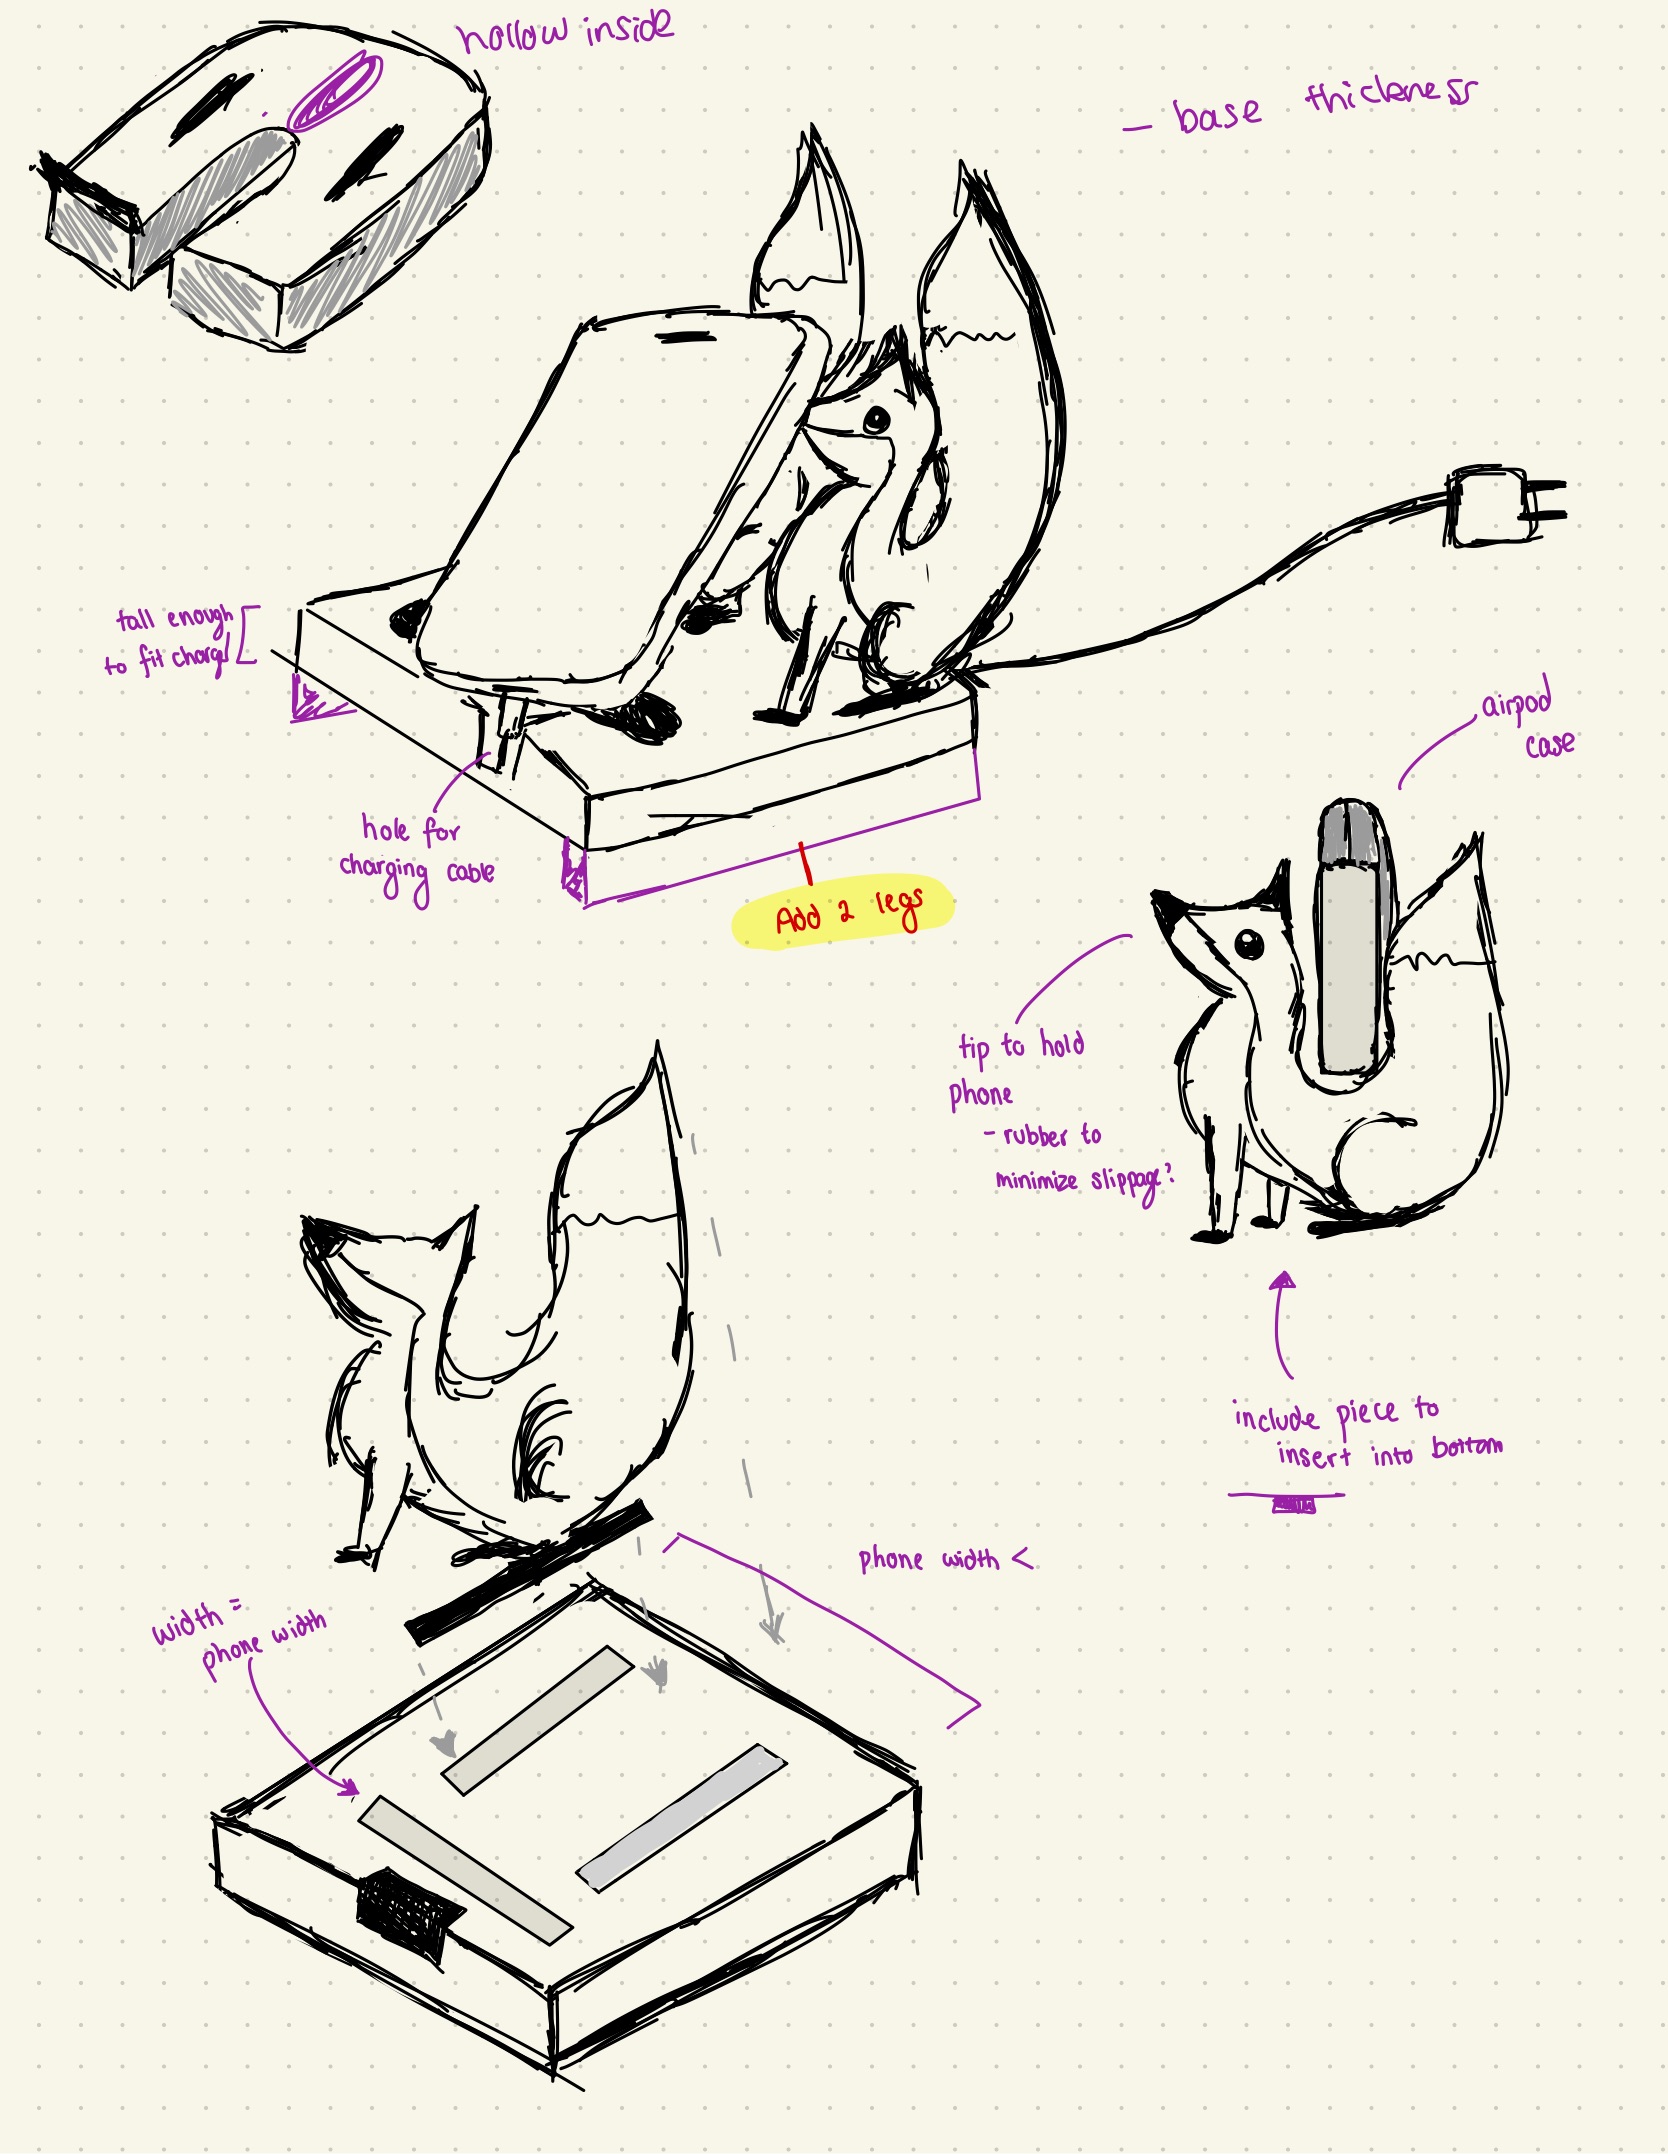 hollow inside
- base thickness
tall enough
to fit charg
airpod
case
hole for
charging cable
Add 2 legs
tip to hold
phone
- rubber to
minimize slippage?
include piece to
insert into bottom
phone width <
width =
phone width